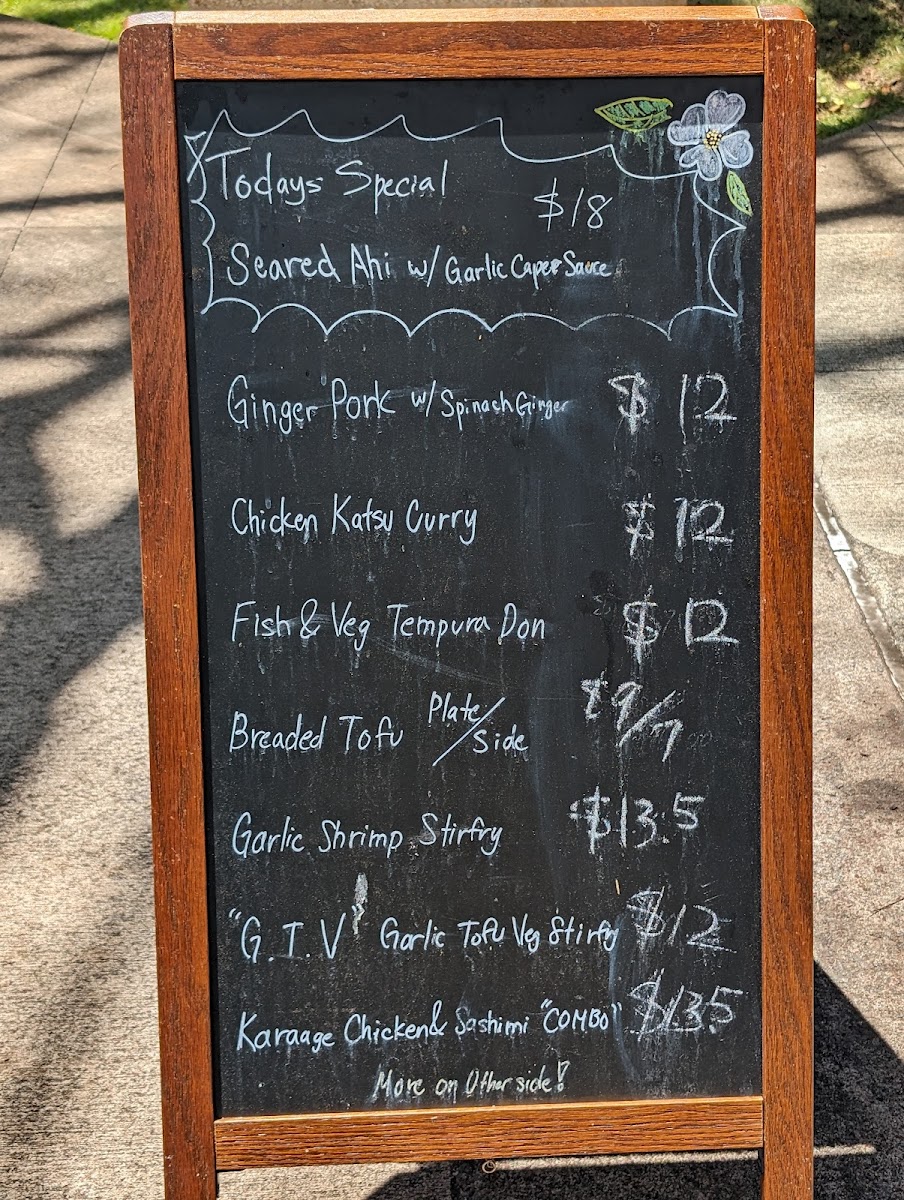 Todays Special
$18
Seared Ahi w/ Garlic Caper Sauce
Ginger Pork w/ Spinach Ginger $12
Chicken Katsu Curry $12
Fish & Veg Tempura Don $12
Breaded Tofu Plate/Side $9/7
Garlic Shrimp Stirfry $13.5
"G.T.V" Garlic Tofu Veg Stirfry $12
Karaage Chicken & Sashimi "COMBO" $13.5
More on Other side!